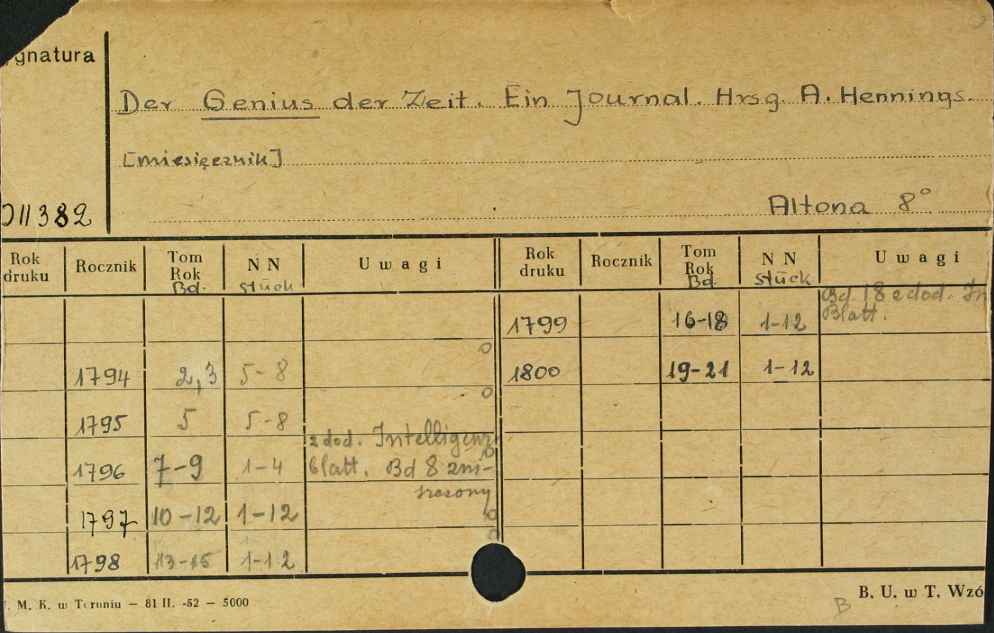 ygnatura
Der Genius der Zeit. Ein Journal. Hrsg. A. Hennings.
[miesięcznik]
011382
Altona 8°
Rok druku Rocznik Tom Rok Bd. NN Stück Uwagi
1794 2,3 5-8
1795 5 5-8
1796 7-9 1-4 z dod. Intelligenz
blatt. Bd 8 zni-
szczony
1797 10-12 1-12
1798 13-15 1-12
Rok druku Rocznik Tom Rok Bd NN Stück Uwagi
1799 16-18 1-12 Bd. 18 z dod. In
Blatt.
1800 19-21 1-12
M. K. w Toruniu — 81 II. -52 — 5000
B. U. w T. Wzó
B